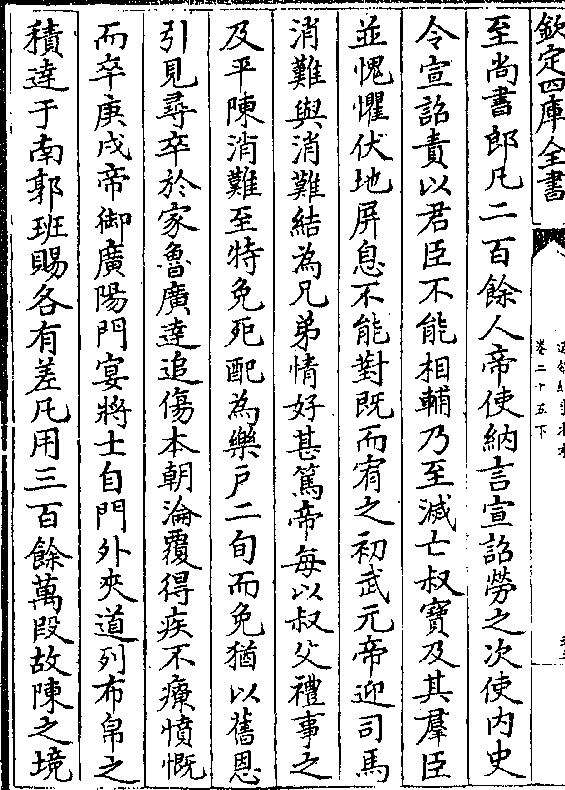 欽定四庫全書
卷二十五下
至尚書郎凡二百餘人帝使納言宣詔勞之次使内史
令宣詔責以君臣不能相輔乃至滅亡叔寶及其羣臣
並愧懼伏地屏息不能對既而宥之初武元帝迎司馬
消難與消難結為兄弟情好甚篤帝每以叔父禮事之
及平陳消難至特免死配為樂户二旬而免猶以舊恩
引見尋卒於家魯廣達追傷本朝淪覆得疾不療憤慨
而卒庚戌帝御廣陽門宴將士自門外夾道列布帛之
積達于南郭班賜各有差凡用三百餘萬段故陳之境